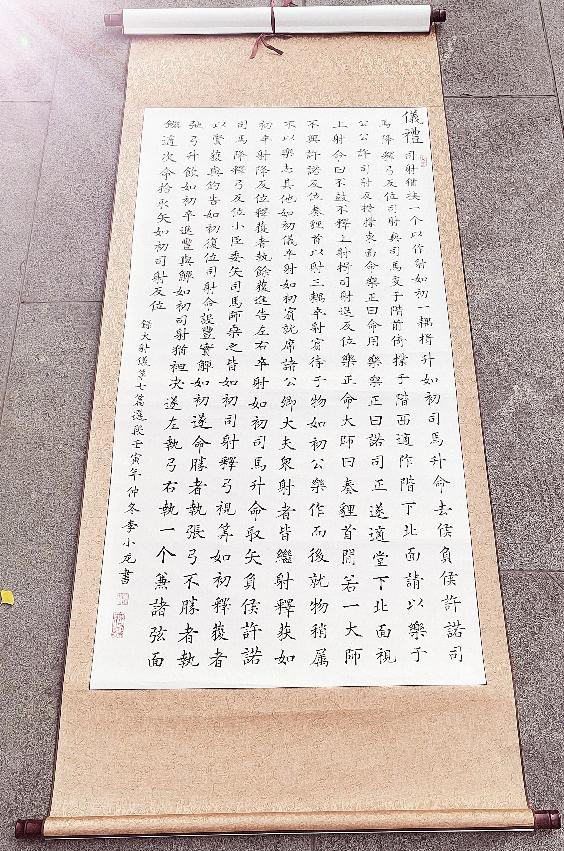 儀禮 司射猶挾一个以作射如初一耦揖升如初司馬升命去侯負侯許諾司
馬降釋弓反位司射與司馬交于階前倚撲于階西適阼階下北面請以樂于
公公許司射反搢撲東面命樂正曰命用樂樂正曰諾司正遂適堂下北面視
上射命曰不鼓不釋上射揖司射退反位樂正命大師曰奏貍首間若一大師
不興許諾反位奏貍首以射三耦卒射賓待于物如初公樂作而後就物稍属
不以樂志其他如初儀卒射如初賓就席諸公卿大夫衆射者皆繼射釋获如
初卒射降反位釋獲者執餘獲進告左右卒射如初司馬升命取矢負侯許諾
司馬降釋弓反位小臣委矢司馬師乘之皆如初司射釋弓視筭如初釋獲者
以賢獲與鈞告如初復位司射命設豐實觶如初遂命勝者執張弓不勝者執
弛弓升飲如初卒退豐與觶如初司射猶袒決遂左執弓右執一个兼諸弦面
鏃適次命拾取矢如初司射反位
錄大射儀第七篇選段壬寅年仲冬李小龙書